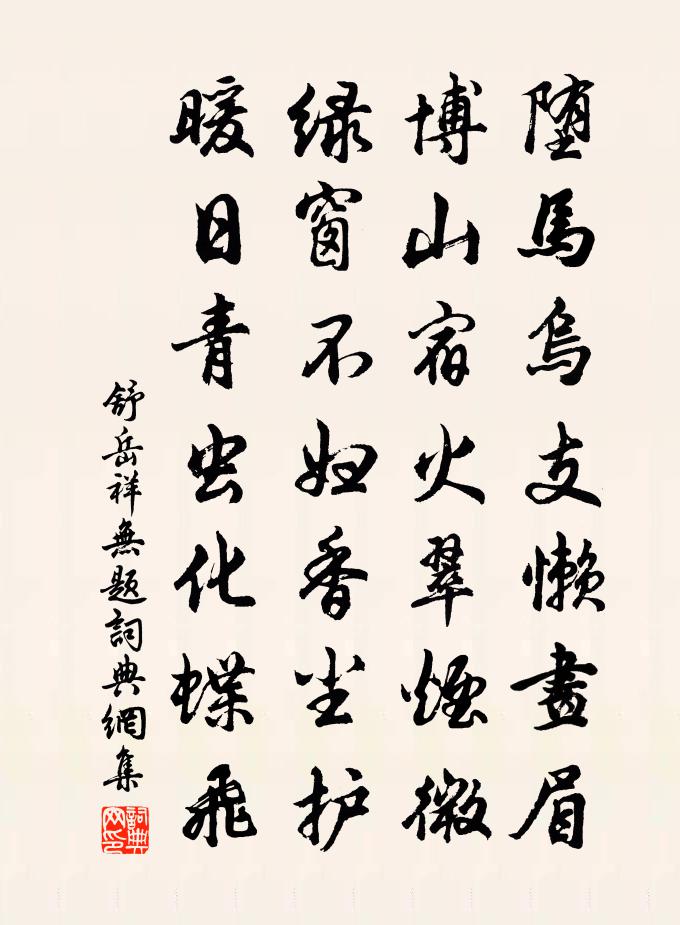 堕馬烏支懶畫眉
博山宿火翠煙微
緑窗不妇香尘护
暖日青虫化蝶飛
舒岳祥無題詞典網集
詞典网印